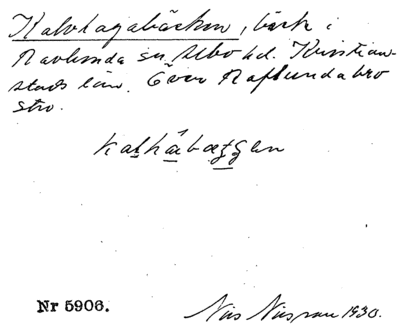 Kalvhagabäcken, bäck i
Ravlunda sn, Albo hd. Kristian-
stads län. Över Raflunda bro
stro.
kalhâbæggen
Nr 5906.
Nils Nilsson 1930.